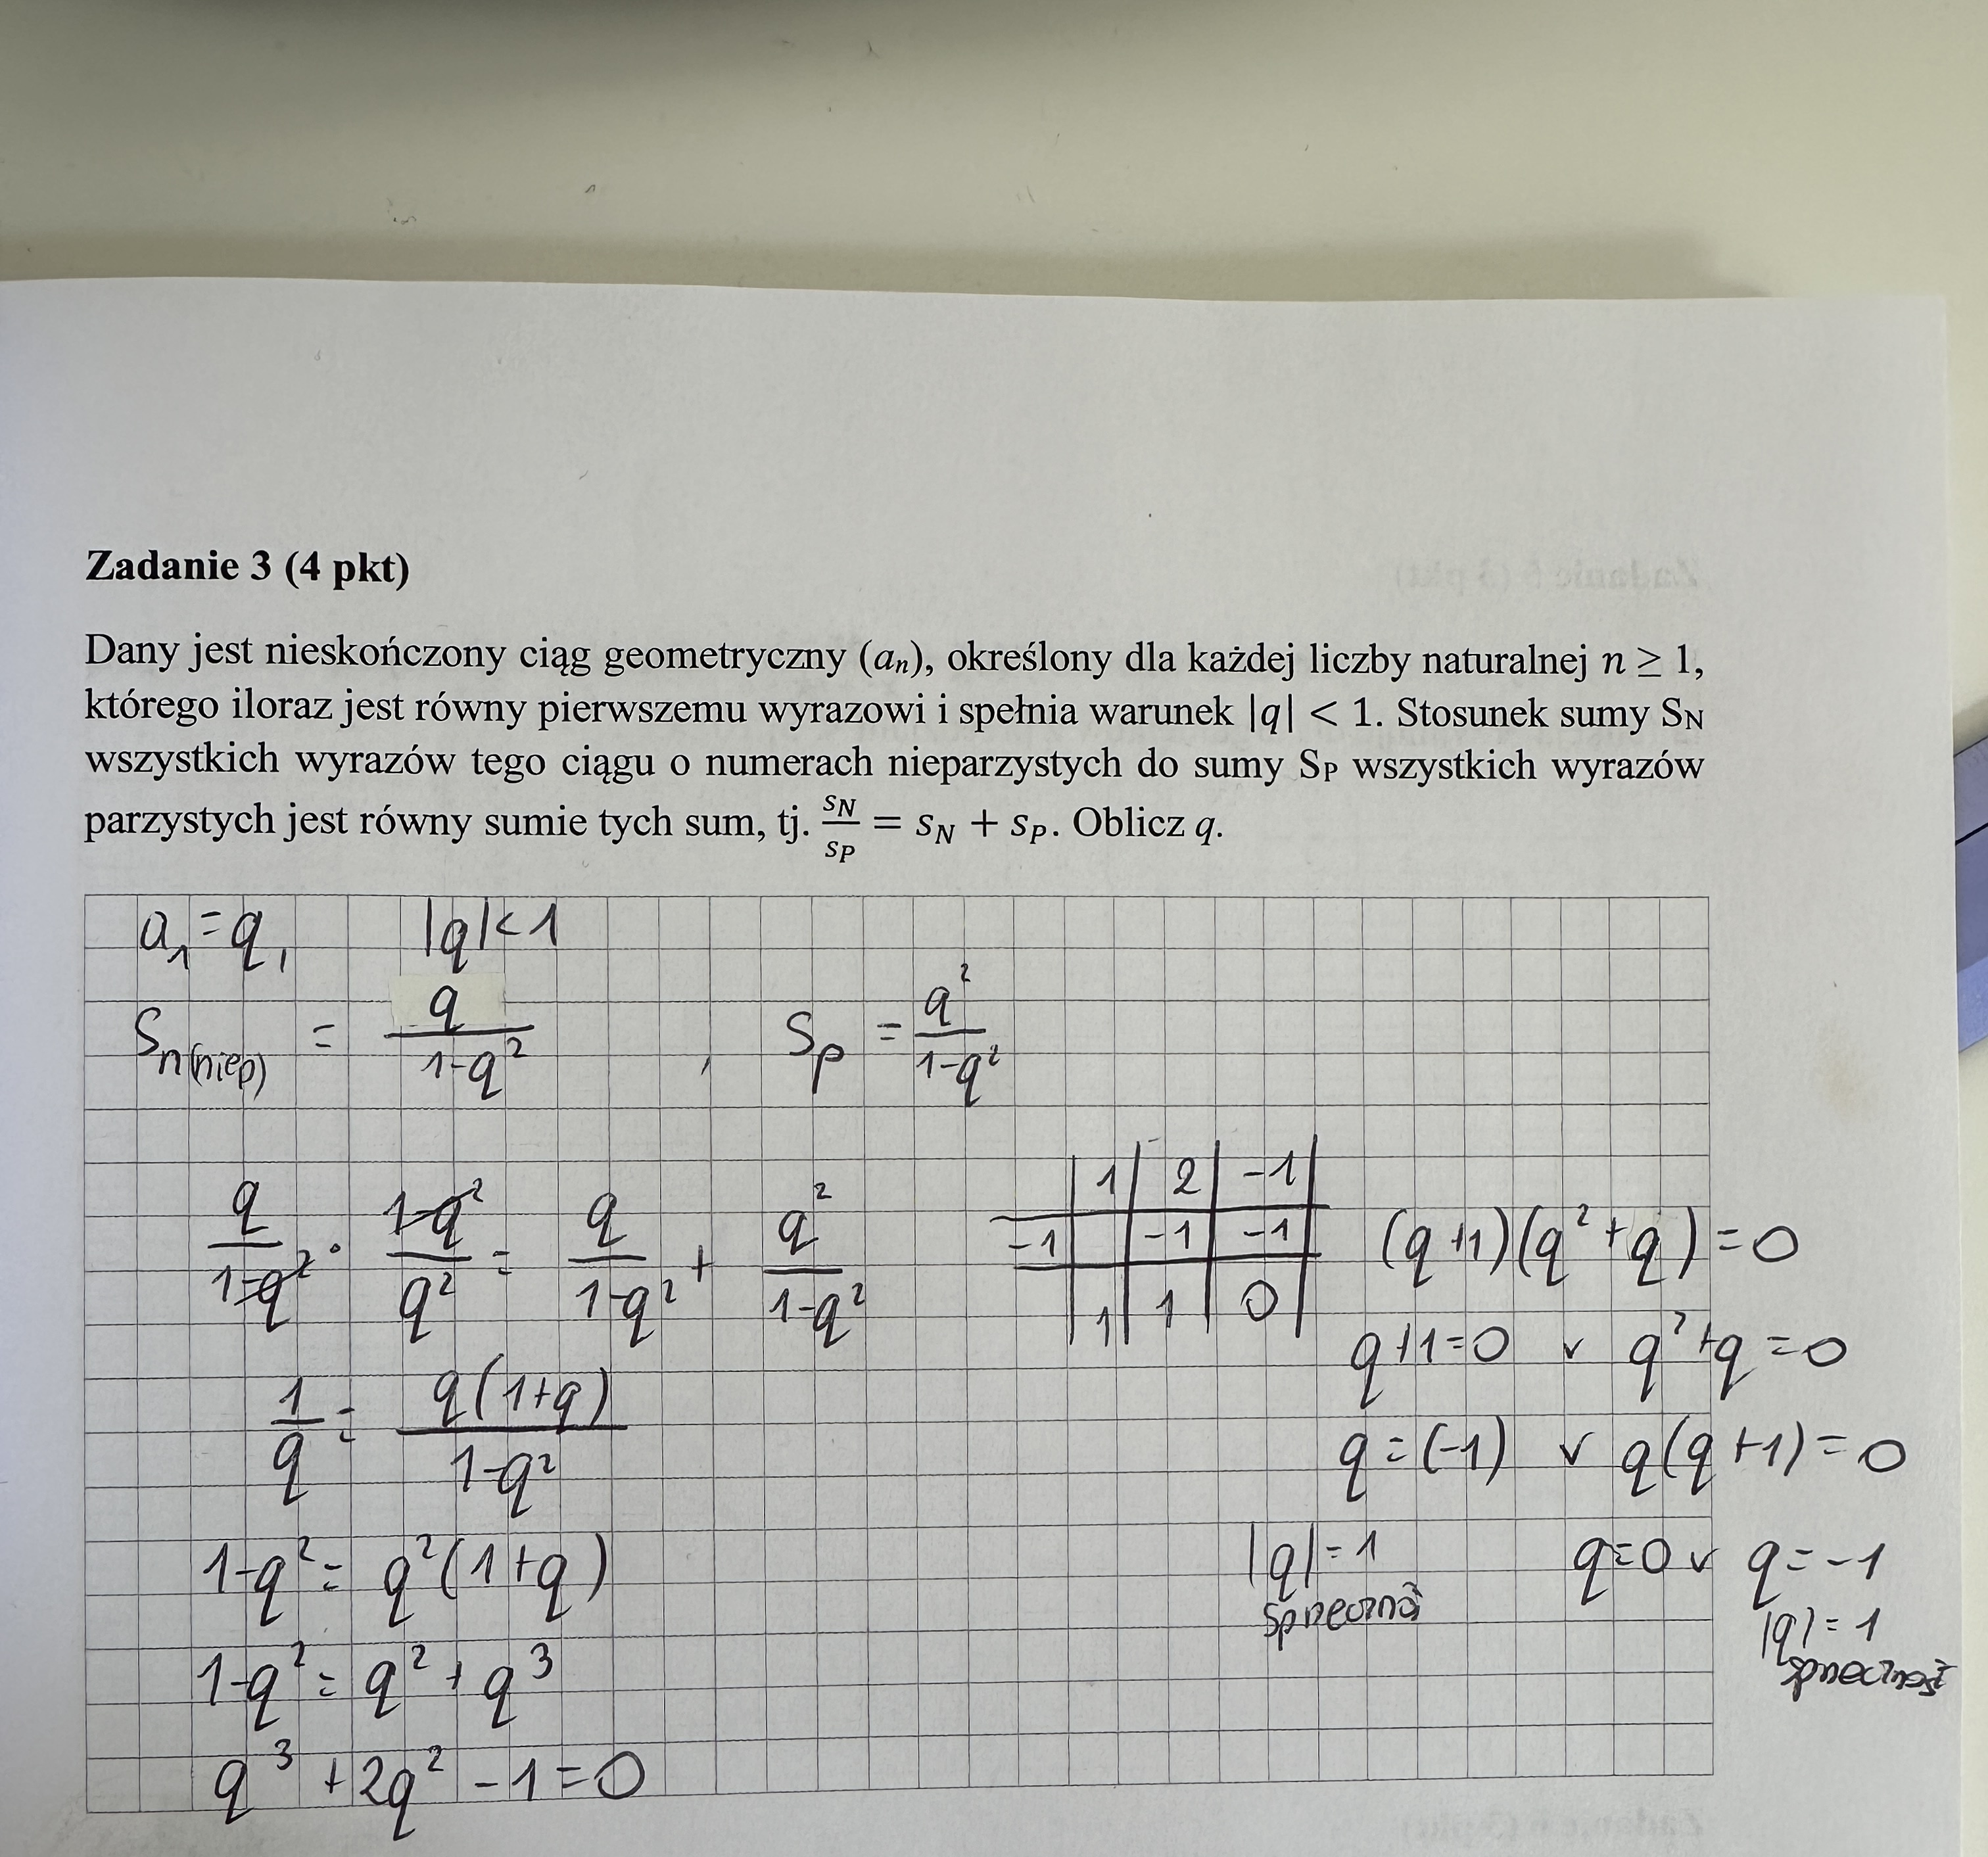 Zadanie 3 (4 pkt)
Dany jest nieskończony ciąg geometryczny (aₙ), określony dla każdej liczby naturalnej n ≥ 1,
którego iloraz jest równy pierwszemu wyrazowi i spełnia warunek |q| < 1. Stosunek sumy SN
wszystkich wyrazów tego ciągu o numerach nieparzystych do sumy SP wszystkich wyrazów
parzystych jest równy sumie tych sum, tj. SN/SP = SN + SP. Oblicz q.
a₁ = q, |q| < 1
Sn(niep) = q/(1-q²) , Sp = q²/(1-q²)
q/(1-q²) · (1-q²)/q² = q/(1-q²) + q²/(1-q²)
1/q = q(1+q)/(1-q²)
1-q² = q²(1+q)
1-q² = q² + q³
q³ + 2q² - 1 = 0
| 1 | 2 | -1 |
-1 | | -1 | -1
| 1 | 1 | 0 |
(q+1)(q²+q) = 0
q+1=0 v q²+q = 0
q = (-1) v q(q+1) = 0
|q| = 1 q=0 v q = -1
sprzeczność |q| = 1
sprzeczność